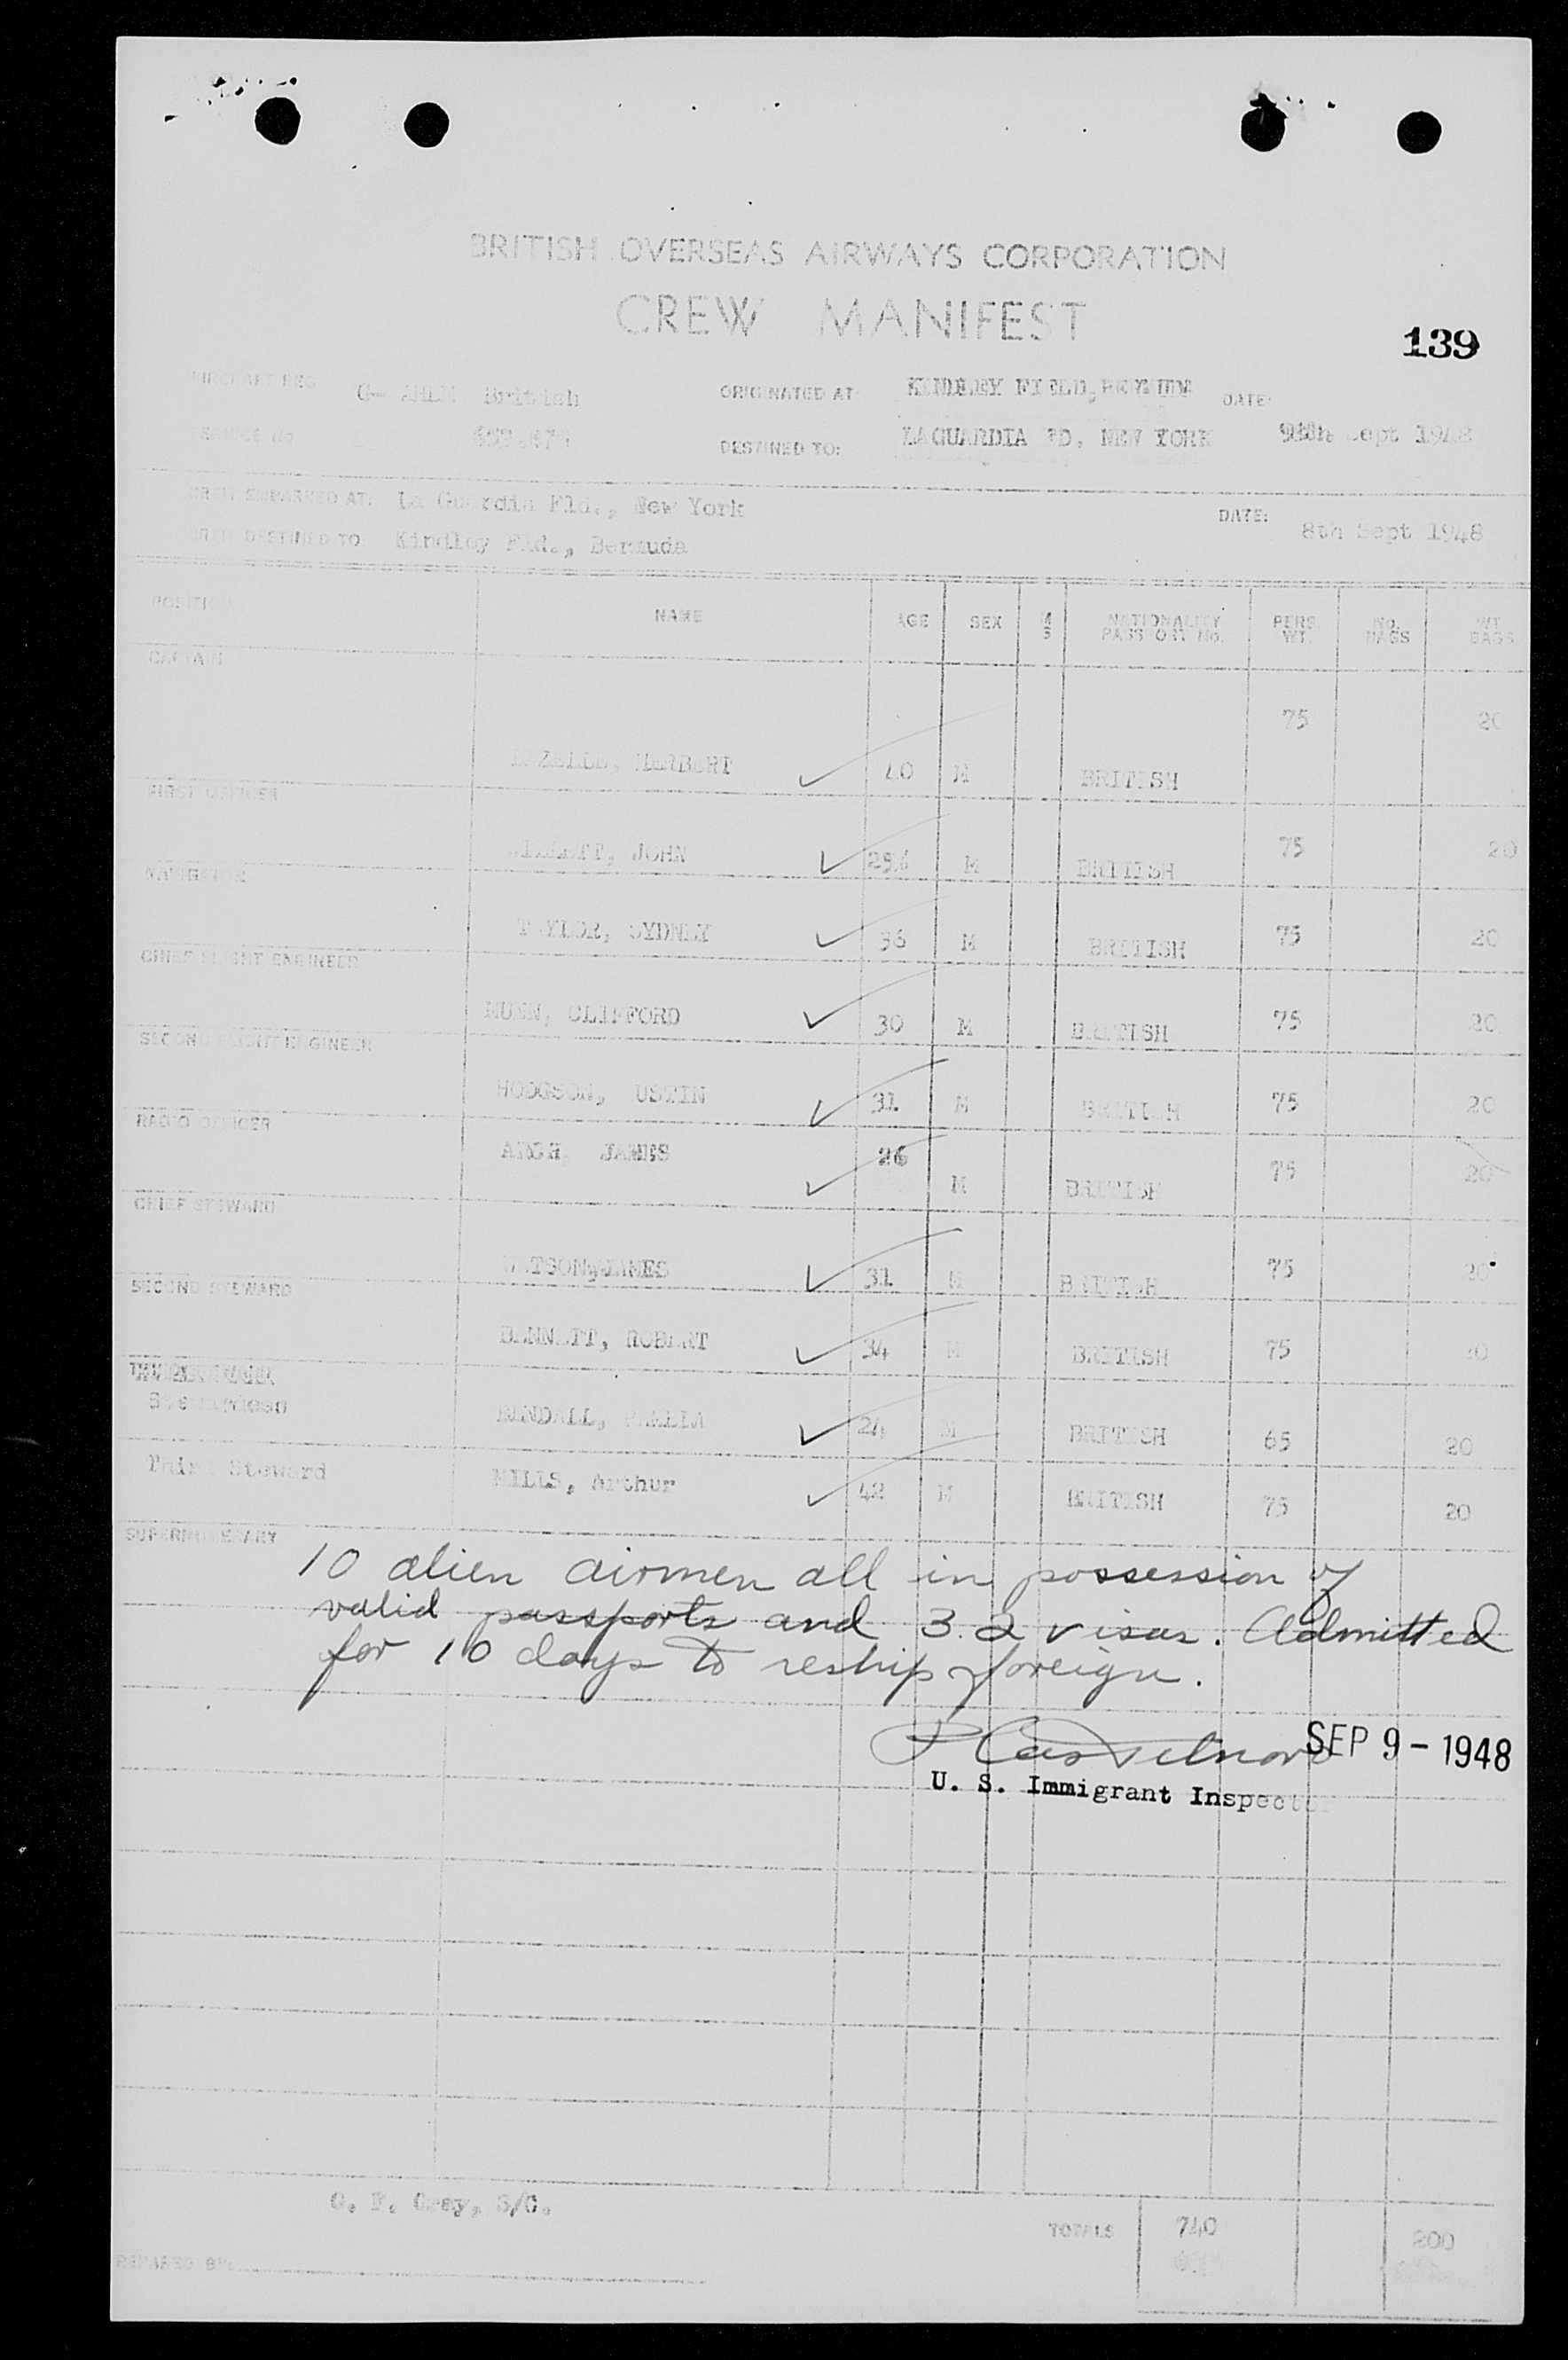 BRITISH OVERSEAS AIRWAYS CORPORATION
CREW MANIFEST
139
AIRCRAFT REG. British ORIGINATED AT: KINDLEY FIELD, BERMUDA DATE:
SERVICE No. DESTINED TO: LAGUARDIA FD, NEW YORK 9th Sept 1948
CREW EMBARKED AT: La Guardia Fld., New York DATE: 8th Sept 1948
CREW DESTINED TO Kindley Fld., Bermuda
POSITION NAME AGE SEX M S NATIONALITY PASSPORT No. PERS. WT. No. BAGS WT. BAGS
CAPTAIN
HERBERT 40 M BRITISH 75 20
FIRST OFFICER
JOHN M BRITISH 75 20
NAVIGATOR
TAYLOR, SYDNEY 36 M BRITISH 75 20
CHIEF FLIGHT ENGINEER
NUNN, CLIFFORD 30 M BRITISH 75 20
SECOND FLIGHT ENGINEER
HODGSON, 31 M BRITISH 75 20
RADIO OFFICER
JAMES 26 M BRITISH 75 20
CHIEF STEWARD
WATSON, JAMES 31 M BRITISH 75 20
SECOND STEWARD
BENNETT, ROBERT 34 M BRITISH 75 20
Stewardess
24 M BRITISH 65 20
Third Steward MILLS, Arthur 42 M BRITISH 75 20
SUPERNUMERARY
10 alien airmen all in possession of
valid passports and 3.2 visas. Admitted
for 10 days to reship foreign.
SEP 9 - 1948
U. S. Immigrant Inspector
Grey, S/O.
TOTALS 740 200
PREPARED BY: